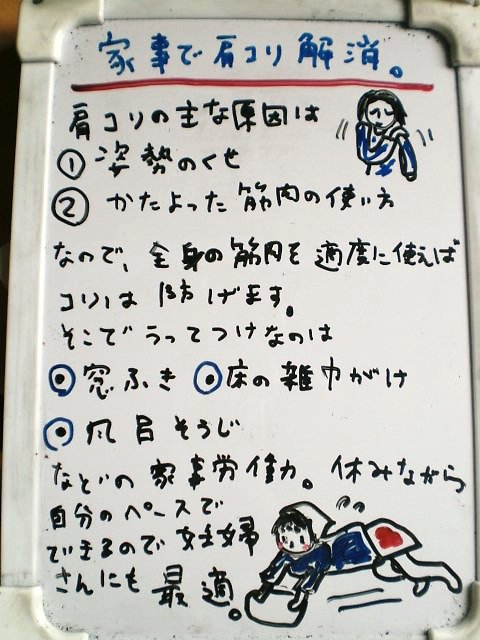 家事で肩コリ解消。
肩コリの主な原因は
① 姿勢のくせ
② かたよった筋肉の使い方
なので、全身の筋肉を適度に使えば
コリは防げます。
そこでうってつけなのは
◉窓ふき ◉床の雑巾がけ
◉風呂そうじ
などの家事労働。休みながら
自分のペースで
できるので妊婦
さんにも最適。